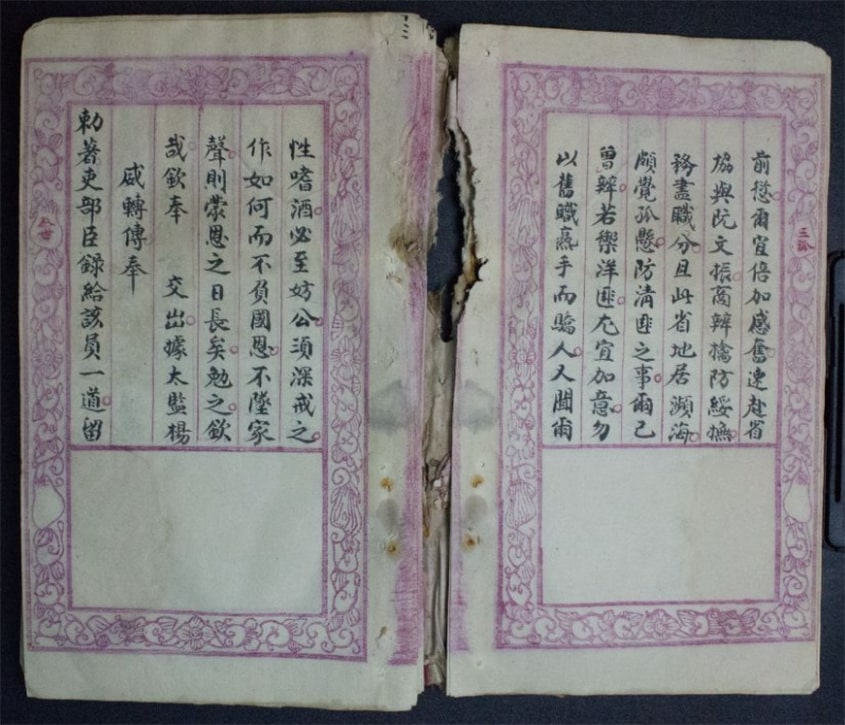 前愆爾宜倍加感奮速赴省
協與阮文振商辦擒防綏撫
務盡職分且此省地居瀕海
頗覺孤懸防清匪之事爾已
曾辦若禦洋匪尤宜加意勿
以舊職熟手而驕人又聞爾
性嗜酒必至妨公須深戒之
作如何而不負國恩不墜家
聲則蒙恩之日長矣勉之欽
哉欽奉 交出據太監楊
威轉傳奉
勅著吏部臣録給該員一道留